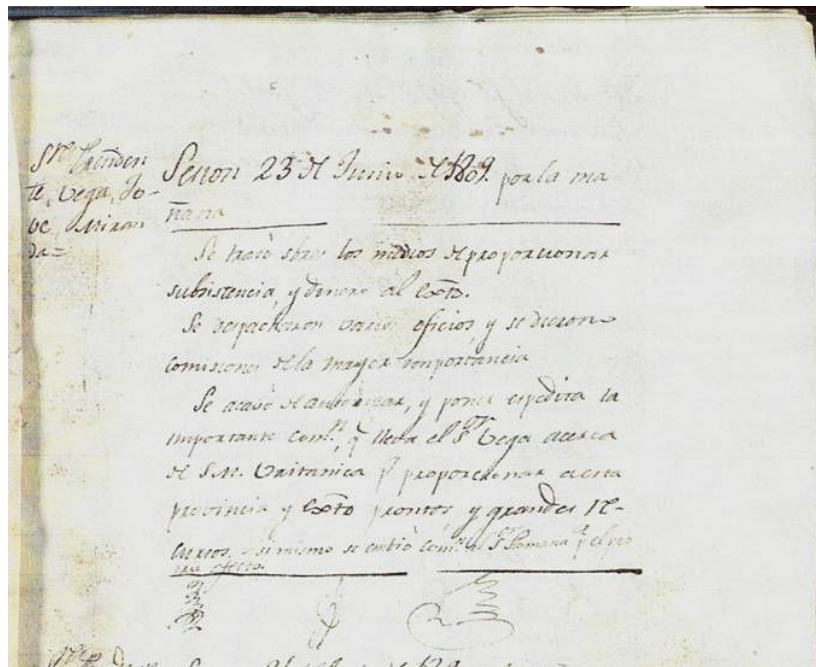 Sres Presiden
te, Vega, Jo-
ve, Miran
da=
Sesion 23 de Junio de 1809. por la ma
ñana
Se trató sbre. los medios de proporcionar
subsistencia, y dinero al Exto.
Se despacharon varios oficios y se dieron
comisiones de la mayor importancia
Se acavó de autorizar, y poner espedita la
importante comn. q lleva el Sor Vega acerca
de S.M. Britanica pa proporcionar a esta
provincia y Exto prontos y grandes re-
cursos. asi mismo se embió comn. al Sr Romana pa el pro
pio efecto.